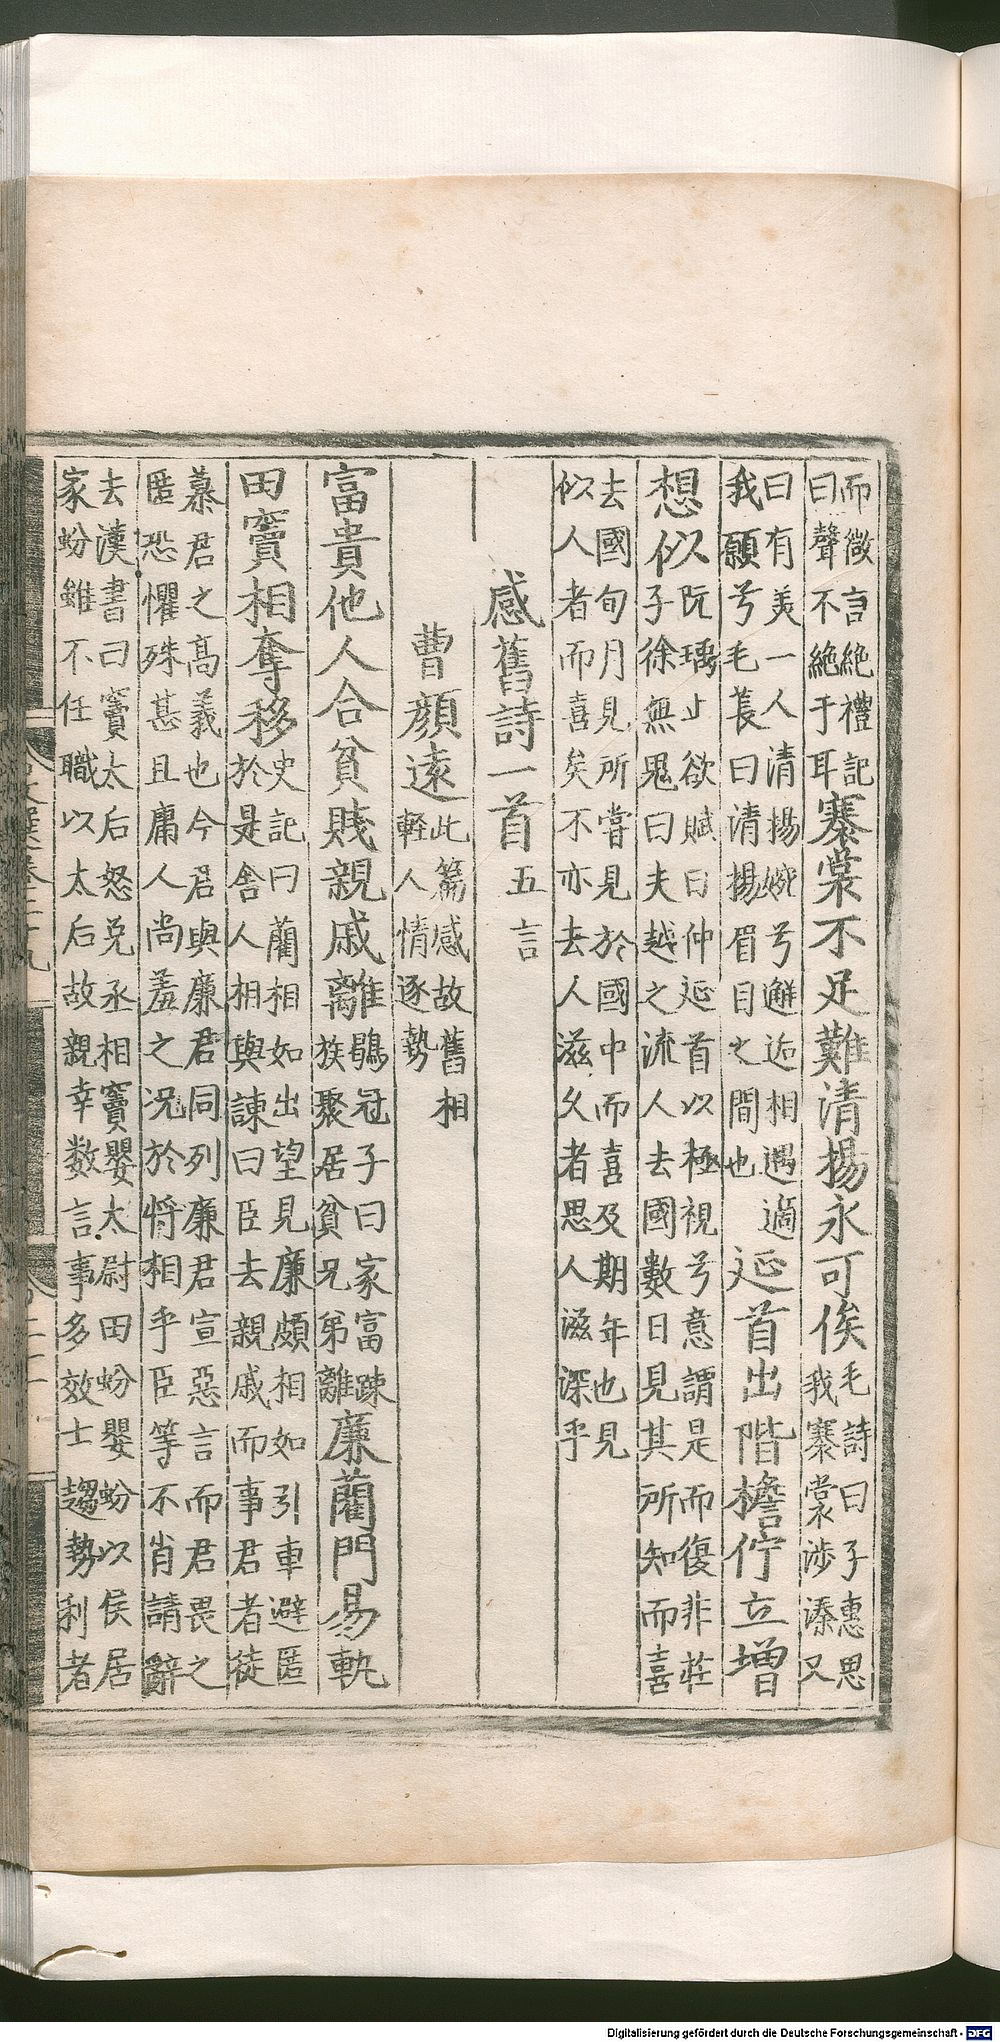 而微言絶禮記曰聲不絶于耳褰裳不足難清揚永可俟毛詩曰子惠思我褰裳渉溱又
曰有美一人清揚婉兮邂逅相遇適我願兮毛萇曰清揚眉目之間也延首出階檐佇立増
想似阮瑀止欲賦曰仲延首以極視兮意謂是而復非莊子徐無鬼曰夫越之流人去國數日見其所知而喜
去國旬月見所嘗見於國中而喜及期年也見似人者而喜矣不亦去人滋久者思人滋深乎
感舊詩一首五言
曹顔遠此篇感故舊相軽人情逐勢
富貴他人合貧賤親戚離鶡冠子曰家富踈族聚居貧兄弟離廉藺門易軌
田竇相奪移史記曰藺相如出望見廉頗相如引車避匿於是舎人相與諫曰臣去親戚而事君者徒
慕君之髙義也今君與廉君同列廉君宣惡言而君畏之匿恐懼殊甚且庸人尚羞之况於將相乎臣等不肖請辭
去漢書曰竇太后怒免丞相竇嬰太尉田蚡嬰蚡以侯居家蚡雖不任職以太后故親幸数言事多效士趨勢利者
Digitalisierung gefördert durch die Deutsche Forschungsgemeinschaft - DFG